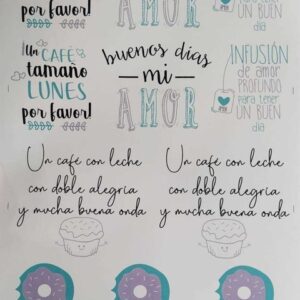 por favor!
AMOR
PROFUNDO
para tener
UN BUEN
día
¡Un
CAFÉ
tamaño
LUNES
por favor!
buenos días
mi
AMOR
INFUSIÓN
de amor
PROFUNDO
para tener
UN BUEN
día
Un café con leche
con doble alegría
y mucha buena onda
Un café con leche
con doble alegría
y mucha buena onda